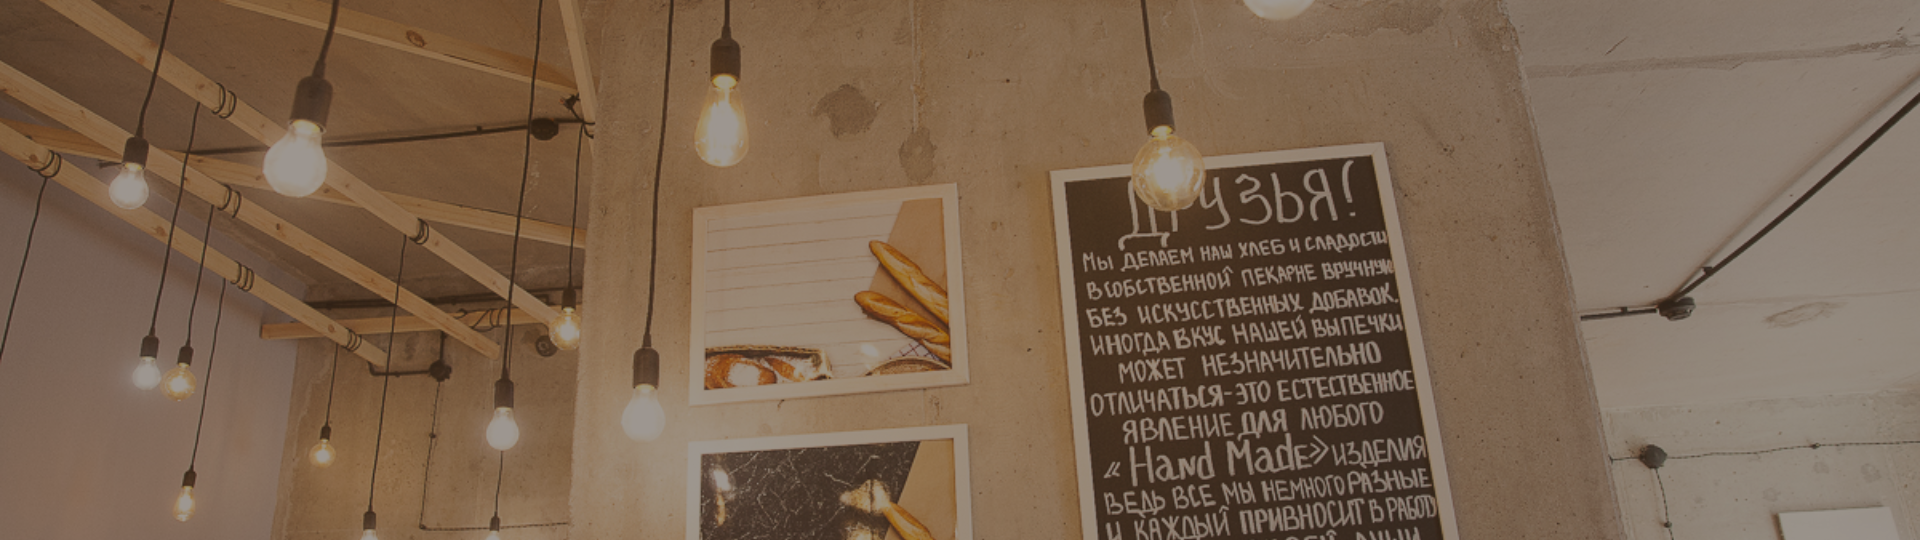 ДРУЗЬЯ!
МЫ ДЕЛАЕМ НАШ ХЛЕБ И СЛАДОСТИ
В СОБСТВЕННОЙ ПЕКАРНЕ ВРУЧНУЮ
БЕЗ ИСКУССТВЕННЫХ ДОБАВОК.
ИНОГДА ВКУС НАШЕЙ ВЫПЕЧКИ
МОЖЕТ НЕЗНАЧИТЕЛЬНО
ОТЛИЧАТЬСЯ-ЭТО ЕСТЕСТВЕННОЕ
ЯВЛЕНИЕ ДЛЯ ЛЮБОГО
«Hand Made» ИЗДЕЛИЯ
ВЕДЬ ВСЕ МЫ НЕМНОГО РАЗНЫЕ
И КАЖДЫЙ ПРИВНОСИТ В РАБОТУ